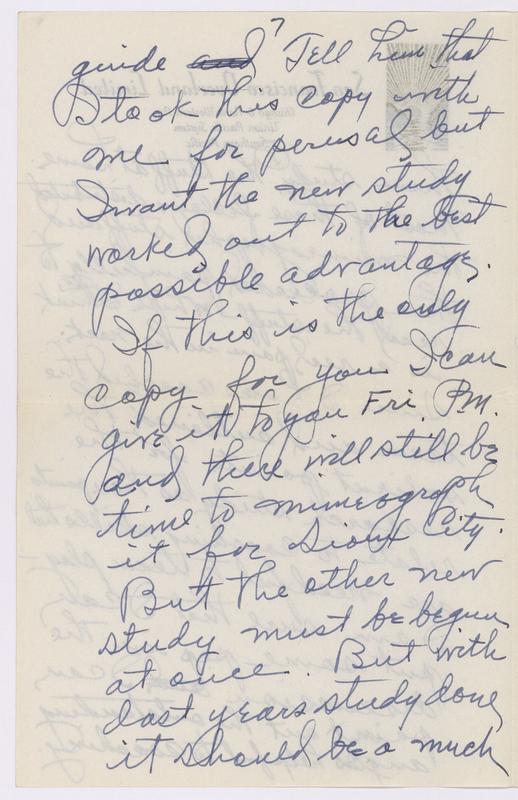 guide and? Tell him that
I took this copy with
me for perusal but
I want the new study
worked out to the best
possible advantage.
If this is the only
copy for you I can
give it to you Fri. P.M.
and there will still be
time to mimeograph
it for Sioux City.
But the other new
study must be begun
at once. But with
last years study done
it should be a much